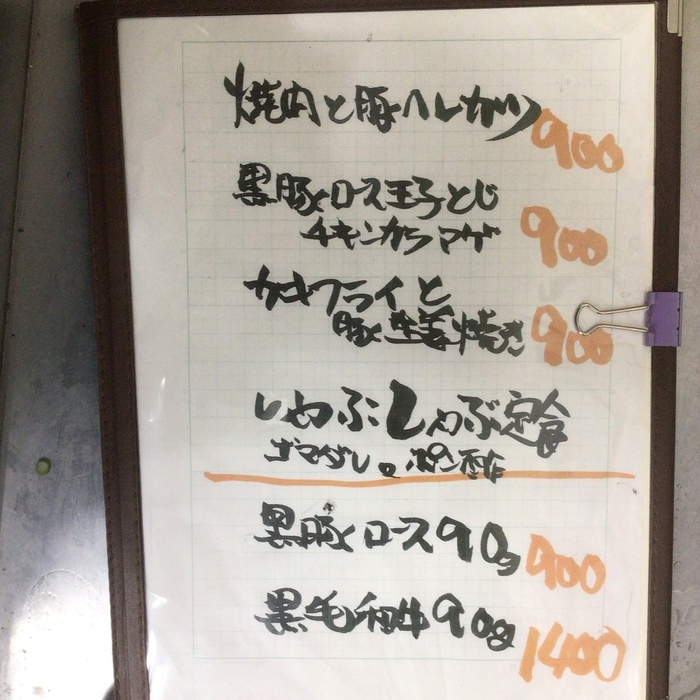 焼肉と豚ヘレカツ 900
黒豚ロース玉子とじ
チキンカラアゲ 900
カキフライと
豚生姜焼き 900
しゃぶしゃぶ定食
ゴマダレ ポン酢
黒豚ロース90g 900
黒毛和牛90g 1400